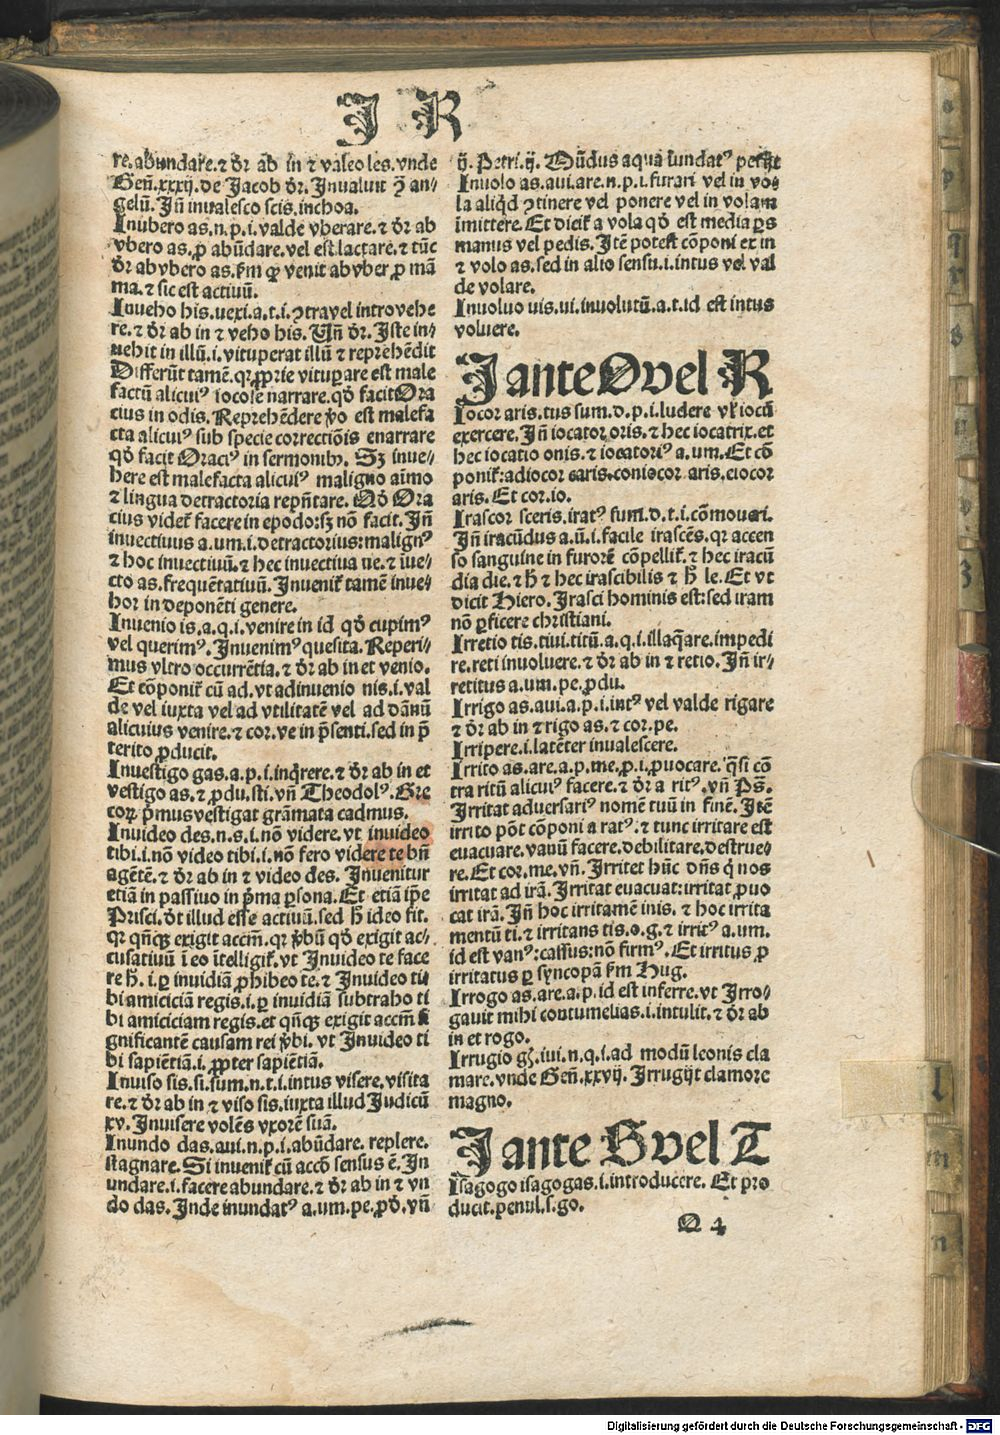 J R
re.abundare.⁊ dr̄ ab in ⁊ valeo les.vnde
Gen̄.xxxij.de Jacob dr̄.Inualuit ꝯ̄ an⸗
gelū.Jn̄ inualesco scis.inchoa.
Inubero as.n.p.i.valde vberare.⁊ dr̄ ab
vbero as.ꝓ abūdare.vel est lactare.⁊ tūc
dr̄ ab vbero as.ẜm ꝙ venit ab vber ꝓ mā
ma.⁊ sic est actiuū.
Inueho his.uexi.a.t.i.ꝯtra vel introvehe
re.⁊ dr̄ ab in ⁊ veho his.Vn̄ dr̄.Iste in⸗
uehit in illū.i.vituperat illū ⁊ reprehēdit
Differūt tamē.qꝛ ꝓprie vituꝑare est male
factū alicuiꝰ iocose narrare.qd̄ facit Ora
cius in odis.Reprehēdere ꝟo est malefa
cta alicuiꝰ sub specie correctiōis enarrare
qd̄ facit Oraciꝰ in sermonibꝫ. Sꝫ inue⸗
here est malefacta alicuiꝰ maligno aīmo
⁊ lingua detractoria repn̄tare. Qd̄ Ora
cius videt᷑ facere in epodo:sꝫ nō facit. Jn̄
inuectiuus a.um.i.detractorius:malignꝰ
⁊ hoc inuectiuū.⁊ hec inuectiua ue.⁊ īue⸗
cto as.frequētatiuū.Inuenit᷑ tamē inue⸗
hor in deponēti genere.
Inuenio is.a.q.i.venire in id qd̄ cupimꝰ
vel querimꝰ.Inuenimꝰ quesita. Reperi⸗
mus vltro occurrētia.⁊ dr̄ ab in et venio.
Et cōponit᷑ cū ad.vt adinuenio nis.i.val
de vel iuxta vel ad vtilitatē vel ad dānū
alicuius venire.⁊ cor.ve in p̄senti.sed in p̄
terito ꝓducit.
Inuestigo gas.a.p.i.inq̄rere.⁊ dr̄ ab in et
vestigo as.⁊ ꝓdu.sti.vn̄ Theodolꝰ.Gre
coꝝ p̄mus vestigat grāmata cadmus.
Inuideo des.n.s.i.nō videre.vt inuideo
tibi.i.nō video tibi.i.nō fero videre te bn̄
agētē.⁊ dr̄ ab in ⁊ video des. Inuenitur
etiā in passiuo in p̄ma ꝑsona.Et etiā ip̄e
Prisci.dt̄ illud esse actiuū.sed h̄ ideo fit.
qꝛ qn̄qꝫ exigit accm̄.qꝛ ꝟbū qd̄ exigit ac⸗
cusatiuū ī eo ītelligit᷑.vt Inuideo te face
re h̄.i.ꝑ inuidiā ꝓhibeo te.⁊ Inuideo ti
bi amiciciā regis.i.ꝑ inuidiā subtraho ti
bi amiciciam regis.et qn̄qꝫ exigit accm̄ si
gnificantē causam rei ꝟbi. vt Inuideo ti
bi sapiētiā.i.ꝓpter sapiētiā.
Inuiso sis.si.sum.n.t.i.intus visere.visita
re.⁊ dr̄ ab in ⁊ viso sis.iuxta illud Judicū
xv.Inuisere volēs vxorē suā.
Inundo das.aui.n.p.i.abūdare. replere.
stagnare.Si inuenit᷑ cū accō sensus ē.In
undare.i.facere abundare.⁊ dr̄ ab in ⁊ vn
do das.Inde inundatꝰ a.um.pe.ꝓd̄.vn̄
ij.Petri.ij. Mūdus aqua īundatꝰ
Inuolo as.aui.are.n.p.i.furari vel in vo⸗
la aliqd̄ ꝯtinere vel ponere vel in volam
īmittere.Et dicit᷑ a vola qd̄ est media ꝑs
manus vel pedis.Itē potest cōponi ex in
⁊ volo as.sed in alio sensu.i.intus vel val
de volare.
Inuoluo uis.ui.inuolutū.a.t.id est intus
voluere.
J ante O vel R
Iocor aris.tus sum.d.p.i.ludere vl̓ iocū
exercere.Jn̄ iocator oris.⁊ hec iocatrix.et
hec iocatio onis.⁊ iocatoriꝰ a.um.Et cō
ponit᷑:adiocor aris.coniocor aris.eiocor
aris.Et cor.io.
Irascor sceris.iratꝰ sum.d.t.i.cōmoueri.
Jn̄ iracūdus a.ū.i.facile irascēs.qꝛ accen
so sanguine in furorē cōpellit᷑.⁊ hec iracū
dia die.⁊ h̄ ⁊ hec irascibilis ⁊ h̄ le.Et vt
dicit Hiero.Irasci hominis est:sed iram
nō ꝑficere christiani.
Irretio tis.tiui.titū.a.q.i.illaq̄are.impedi
re.reti inuoluere.⁊ dr̄ ab in ⁊ retio. Jn̄ ir⸗
retitus a.um.pe.ꝓdu.
Irrigo as.aui.a.p.i.intꝰ vel valde rigare
⁊ dr̄ ab in ⁊ rigo as.⁊ cor.pe.
Irripere.i.latēter inualescere.
Irrito as.are.a.p.me.ꝓ.i.ꝓuocare.q̄si cō
tra ritū alicuiꝰ facere.⁊ dr̄ a ritꝰ.vn̄ Ps̄.
Irritat aduersariꝰ nomē tuū in finē. Itē
irrito pōt cōponi a ratꝰ.⁊ tunc irritare est
euacuare.vanū facere.debilitare.destrue⸗
re.Et cor.me.vn̄. Irritet hūc dn̄s q̇ nos
irritat ad irā.Irritat euacuat:irritat ꝓuo
cat irā.Jn̄ hoc irritamē inis.⁊ hoc irrita
mentū ti.⁊ irritans tis.o.g.⁊ irritꝰ a.um.
id est vanꝰ:cassus:nō firmꝰ.Et irritus ꝓ
irritatus ꝑ syncopā ẜm Hug.
Irrogo as.are.a.p.id est inferre.vt Irro⸗
gauit mihi contumelias.i.intulit.⁊ dr̄ ab
in et rogo.
Irrugio gis.iui.n.q.i.ad modū leonis cla
mare.vnde Gen̄.xxvij.Irrugijt clamore
magno.
J ante S vel T
Isagogo isagogas.i.introducere. Et pro
ducit.penul.s.go.
O 4
l
m
n
Digitalisierung gefördert durch die Deutsche Forschungsgemeinschaft - DFG